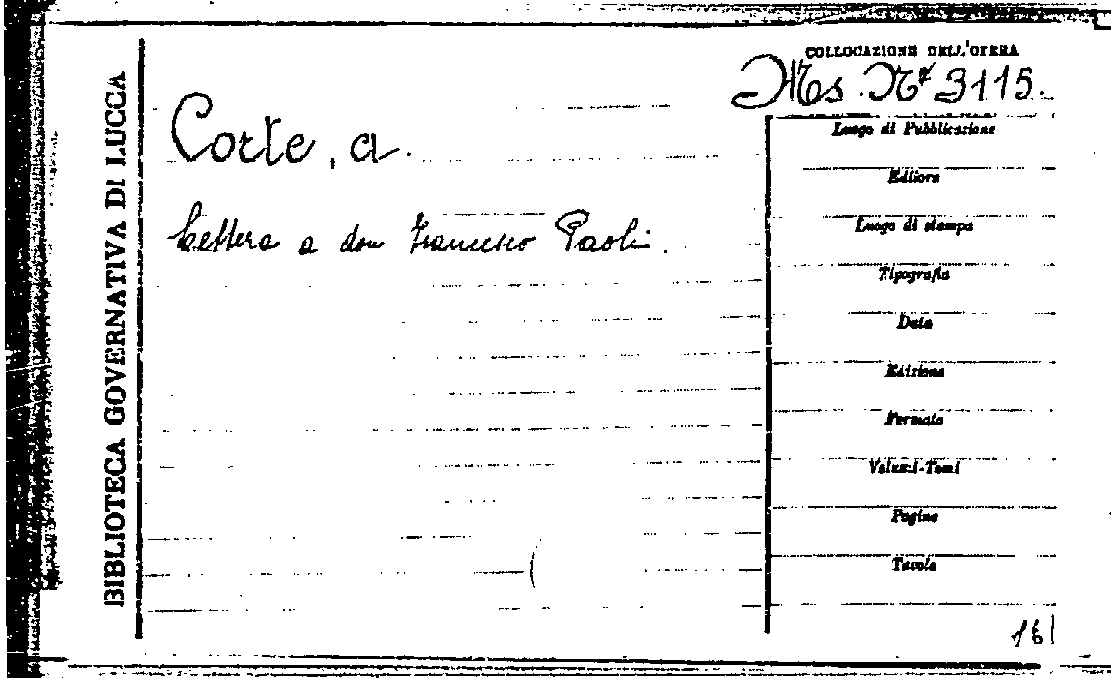 BIBLIOTECA GOVERNATIVA DI LUCCA
COLLOCAZIONE DELL'OPERA
Ms. Nº 3115.
Corte, a.
Lettera a don Francesco Paoli.
Luogo di Pubblicazione
Editore
Luogo di stampa
Tipografia
Data
Edizione
Formato
Volumi-Tomi
Pagine
Tavole